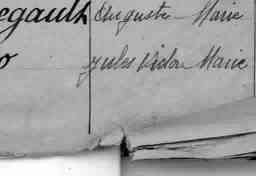 egault Auguste Marie
o Jules Victor Marie